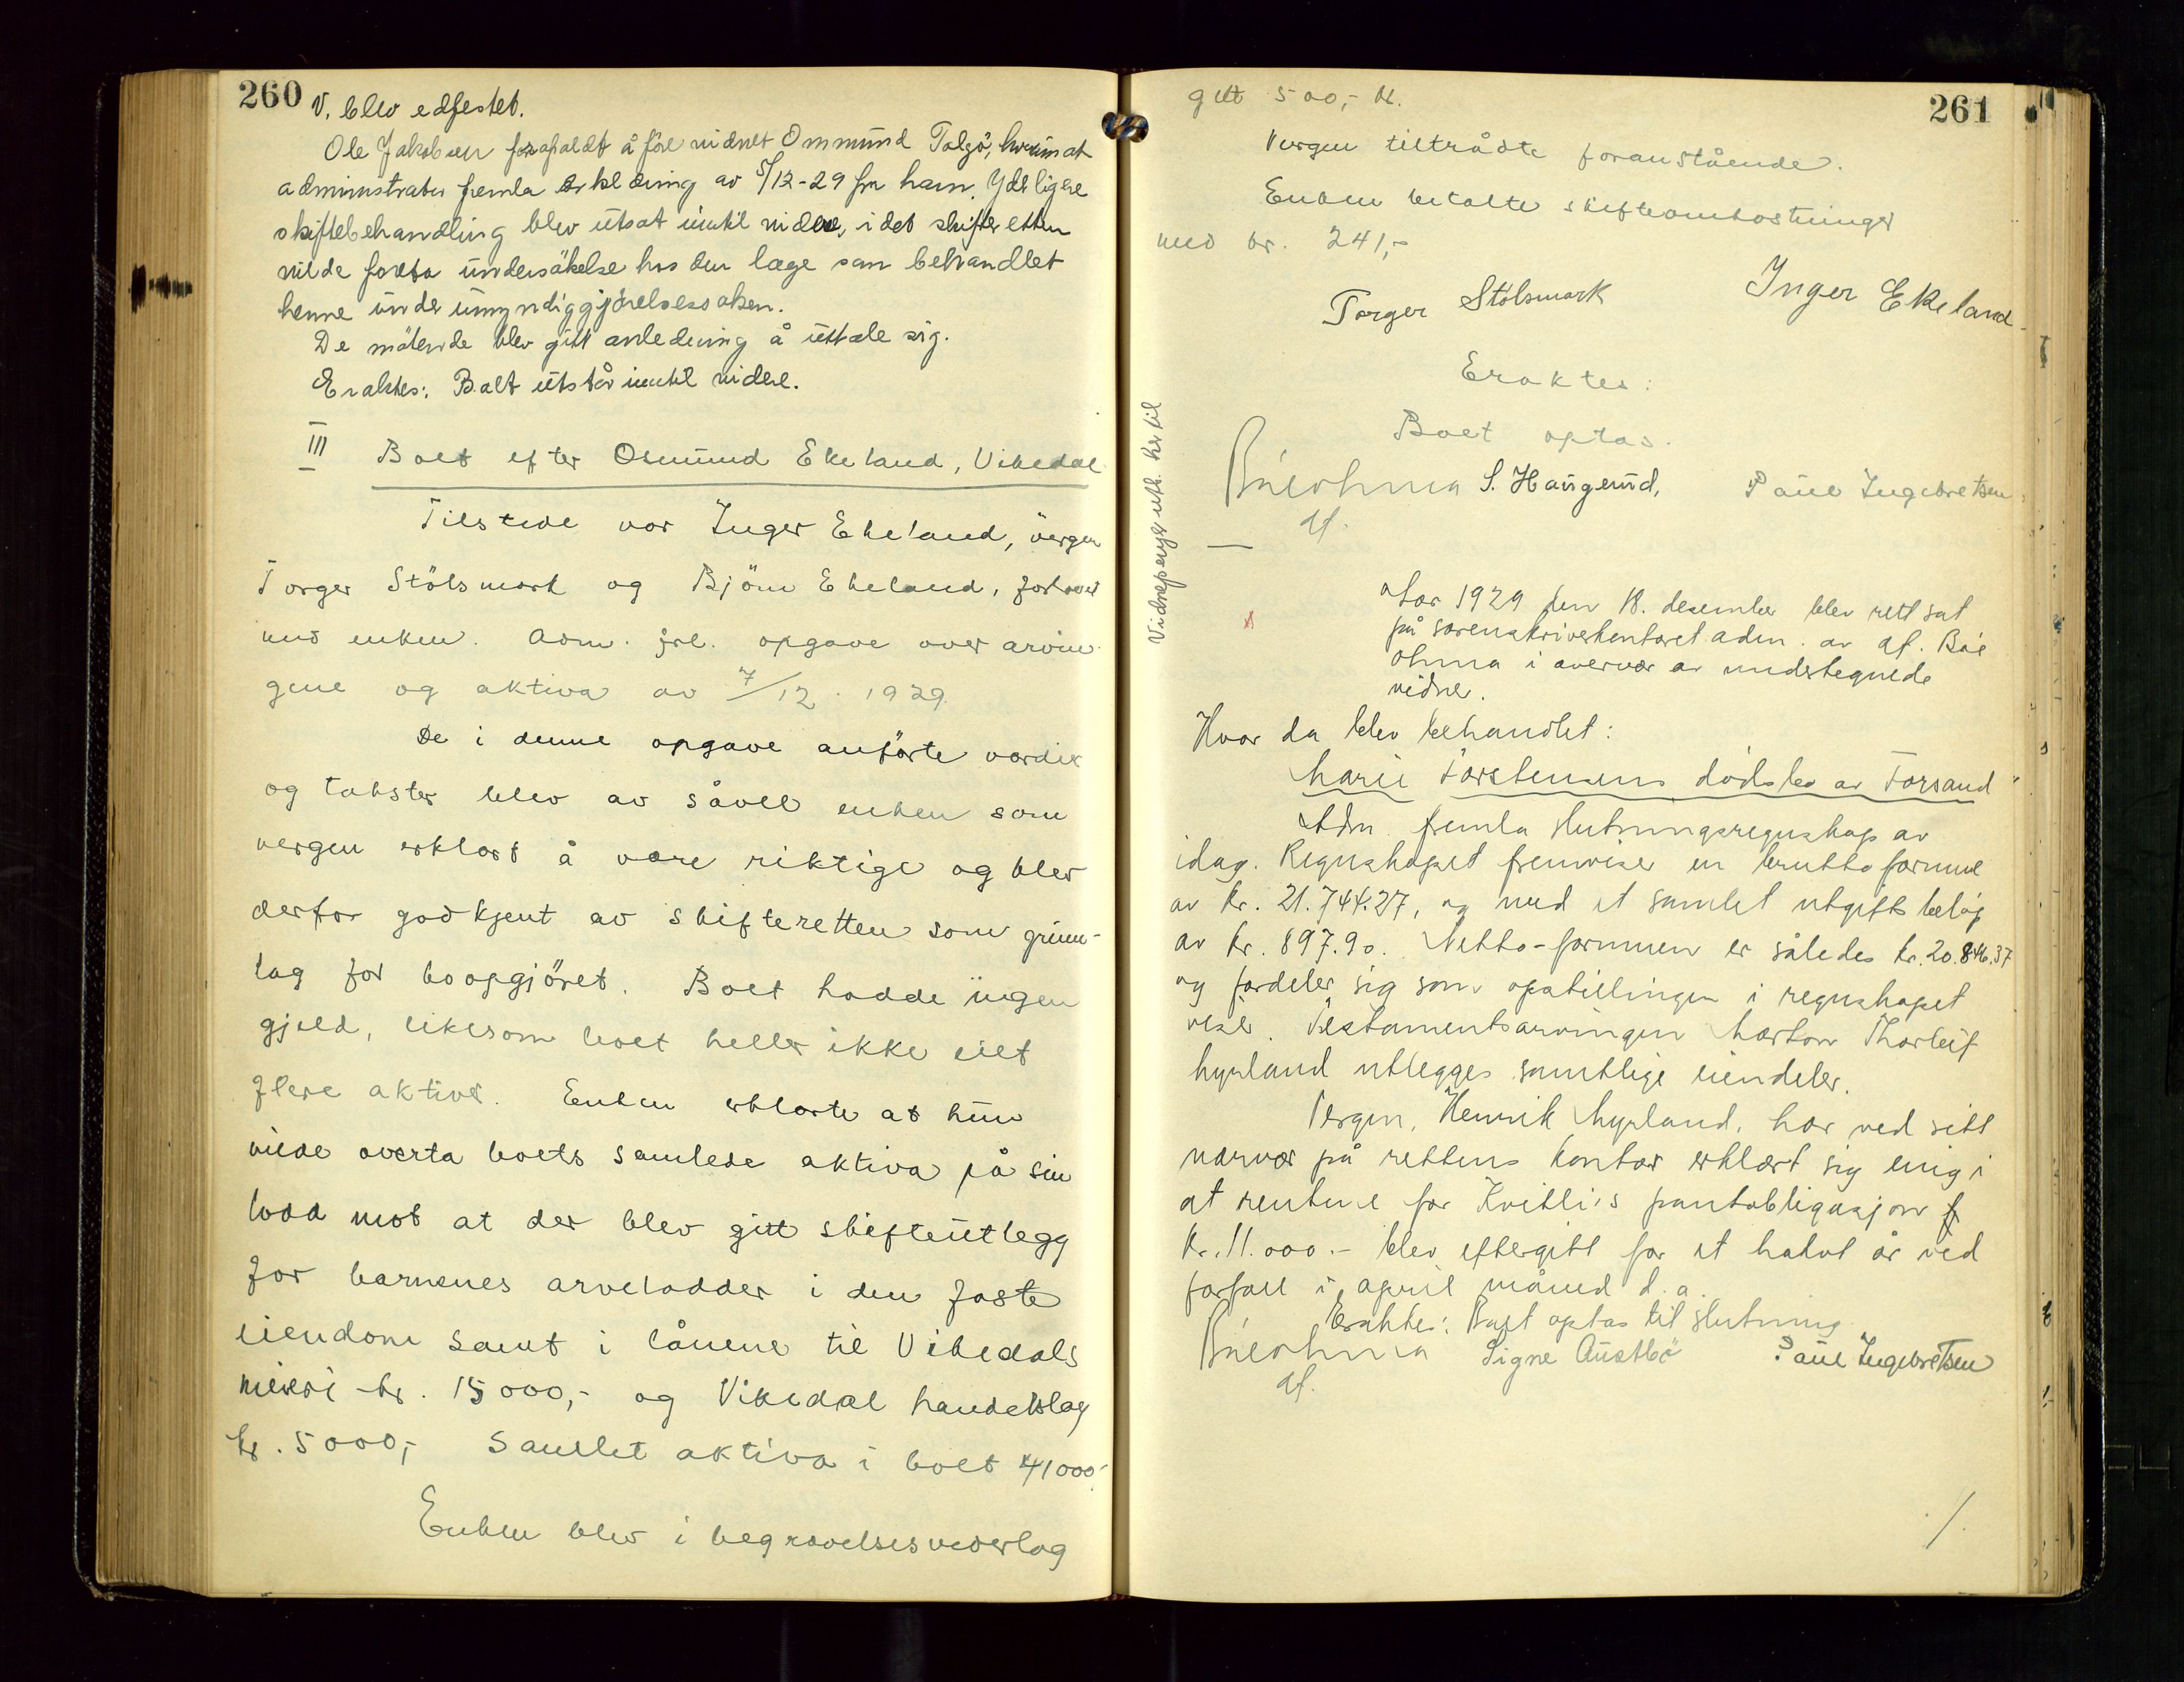 260
V. blev edfestet.
Ole Jakobsen frafaldt å føre vidnet Ommund Talgø, hvorimot
administrator fremla erklæring av 5/12-29 fra ham. Yderligere
skiftebehandling blev utsat inntil videre, idet skifteretten
vilde foreta undersøkelse hos den læge som behandlet
henne under umyndiggjørelsessaken.
De møtende blev gitt anledning å uttale sig.
Eraktes: Boet utstår inntil videre.
III Boet efter Osmund Ekeland, Vikedal
Tilstede var Inger Ekeland, vergen
Torger Stölsmark og Bjørn Ekeland,
med enken. Adm. frl. opgave over arvin-
gene og aktiva av 7/12. 1929.
De i denne opgave anførte verdier
og takster blev av såvel enken som
vergen erklært å være riktige og blev
derfor godkjent av skifteretten som grunn-
lag for boopgjöret. Boet hadde ingen
gjeld, likesom boet heller ikke eiet
flere aktiver. Enken erklærte at hun
vilde overta boets samlede aktiva på sin
lodd mot at der blev gitt skifteutlegg
for barnenes arvelodder i den faste
eiendom samt i lånene til Vikedals
meieri kr. 15000,- og Vikedal handelslag
kr. 5000,- Samlet aktiva i boet 41000,-
Enken blev i begravelsesvederlag
261
gitt 500,- kr.
Vergen tiltrådte foranstående.
Enken betalte skifteomkostninger
med kr. 241,-
Torger Stölsmark Inger Ekeland
Eraktes:
Boet optas.
S. Haugerud, Paul Ingebretsen
af.
Vidnepenger utb. hertil
Aar 1929 den 18. desember blev rett sat
på sorenskriverkontoret adm. av af. Bóe
Ohma i overvær av undertegnede
vidner.
Hvor da blev behandlet:
Marie Torstensens dødsbo av Forsand
Adm. fremla slutningsregnskap av
idag. Regnskapet fremviser en brutto formue
av kr. 21.744.27, og med et samlet utgifts beløp
av kr. 897.90. Netto-formuen er således kr. 20.846.37
og fordeler sig som opstillingen i regnskapet
viser. Testamentsarvingen Morton Thorleif
Myrland utlegges samtlige eiendeler.
Vergen, Henrik Myrland, har ved sitt
nærvær på rettens kontor erklært sig enig i
at rentene for Kvitli's pantobligasjon
kr. 11.000.- blev eftergitt for et halvt år ved
forfall i april måned d. a.
Eraktes: Boet optas til slutning
Signe Austbö Paul Ingebretsen
af.